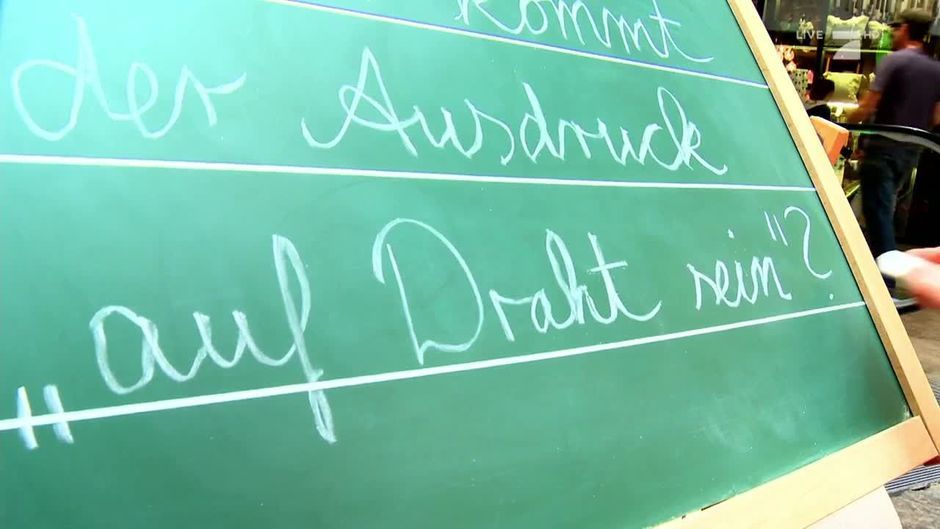 kommt
der Ausdruck
„auf Draht sein"?
LIVE 7 HD